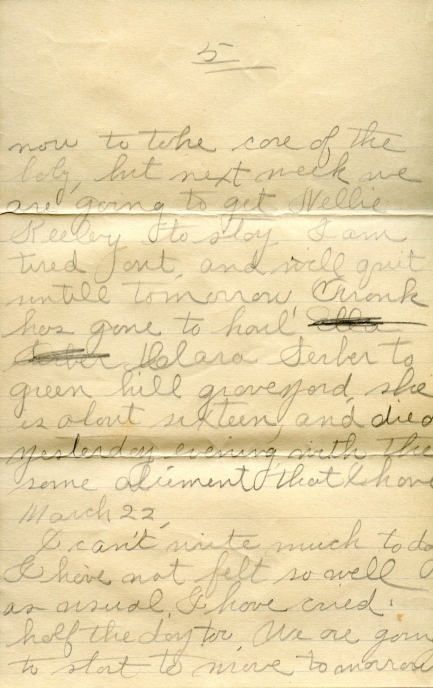 5
now to take care of the
baby, but next week we
are going to get Nellie
Keeley to stay I am
tired out, and will quit
untill tomorrow Frank
has gone to haul Ella
Clara Serber to
green hill graveyard, she
is about sixteen, and died
yesterday evening with the
same aliement that I have
March 22,
I can't write much to da
I have not felt so well
as usual, I have cried
half the day too, We are goin
to start to move tomorrow